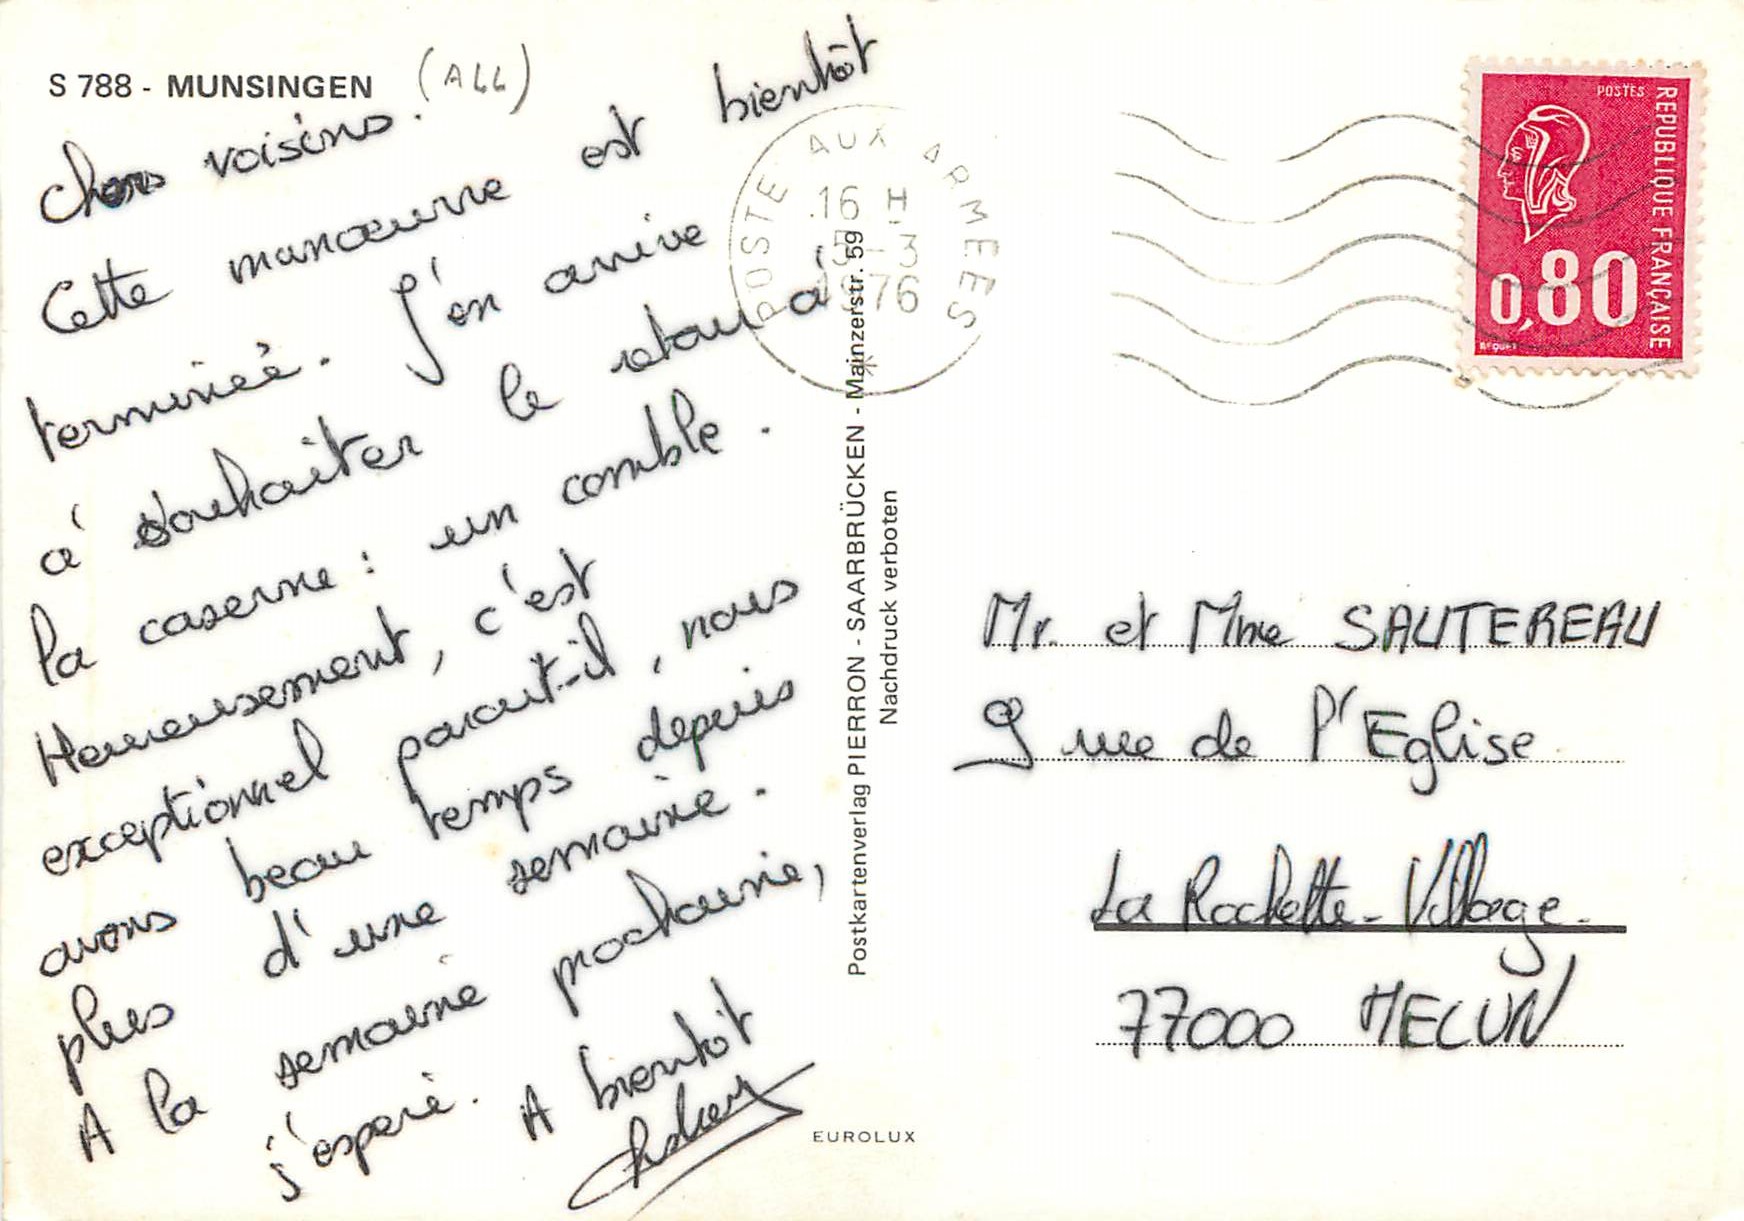 S 788 - MUNSINGEN (ALL)
Chers voisins.
Cette manœuvre est bientôt
terminée. J'en arrive
à souhaiter le retour à
la caserne : un comble.
Heureusement, c'est
exceptionnel parait-il, nous
avons beau temps depuis
plus d'une semaine.
A la semaine prochaine,
j'espère. A bientôt
POSTE AUX ARMEES
16 H
5-3
1976
Postkartenverlag PIERRON - SAARBRÜCKEN - Mainzerstr. 59
Nachdruck verboten
EUROLUX
POSTES
REPUBLIQUE FRANÇAISE
0,80
BEQUET
Mr. et Mme SAUTEREAU
9 rue de l'Eglise
La Rochette-Village.
77000 MELUN